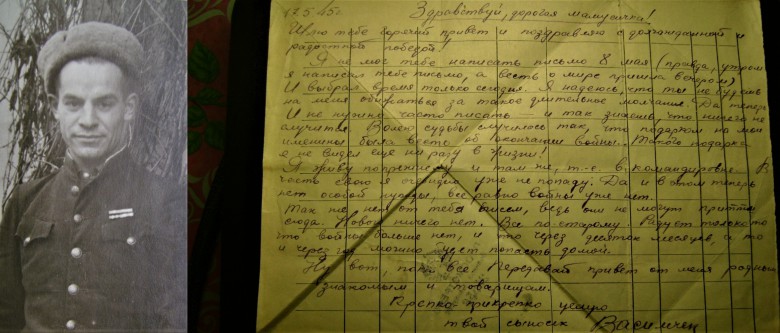 12.5.45г.
Здравствуй, дорогая мамусичка!
Шлю тебе горячий привет и поздравляю с долгожданной и
радостной победой!
Я не мог тебе написать письмо 8 мая (правда, утром
я написал тебе письмо, а весть о мире пришла вечером)
И выбрал время только сегодня. Я надеюсь, что ты не будешь
на меня обижаться за такое длительное молчание. Да теперь
и не нужно часто писать — и так знаешь, что ничего не
случится. Волею судьбы случилось так, что подарком на мои
именины была весть об окончании войны. Такого подарка
я не видел еще ни разу в жизни!
Я живу попрежнему и там же, т.е. в командировке. В
часть свою я очевидно уже не попаду. Да и в этом теперь
нет особой нужды, все равно войны уже нет.
Так же нет от тебя писем, ведь они не могут притти
сюда. Нового ничего нет. Все по-старому. Радует только то
что войны больше нет, и что через десяток месяцев, а то
и через год можно будет попасть домой.
Ну вот, пока все. Передавай привет от меня родным
знакомым и товарищам.
Крепко прикрепко целую
твой сыносик Васимчик